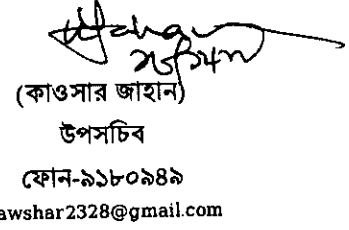 (কাওসার জাহান)
উপসচিব
ফোন-৯১৮০৯৪৯
awshar2328@gmail.com